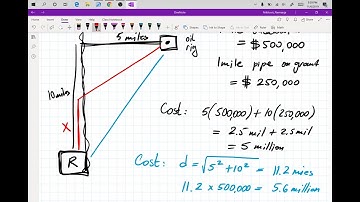 5 miles
oil
rig
10 miles
X
R
= $ 500,000
1 mile pipe on ground
= $ 250,000
Cost: 5(500,000) + 10(250,000)
= 2.5 mil + 2.5 mil
= 5 million
Cost: d = √5² + 10² = 11.2 miles
11.2 × 500,000 = 5.6 million